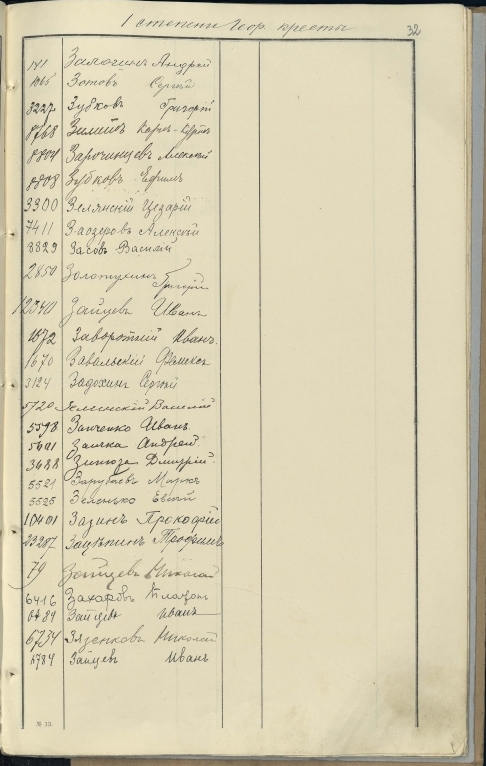 1 степени Геор. кресты 32
141 Андрей
1065 Зотовъ Сергѣй
3227 Зубковъ Григорій
8768
8804 Зарочинцевъ Алексѣй
8808 Зубковъ Ефимъ
3300 Зелянскій Цезарій
7411 Заозеровъ Алексѣй
8829 Засовъ Василій
2850 Золотухинъ
Григорій
12340 Зайцевъ Иванъ
1872 Заворотній Иванъ
1670 Завальскій Феликсъ
3124 Задохинъ Сергѣй
5720 Василій
5598 Зинченко Иванъ
5601 Заичка Андрей
3688 Дмитрій
5521 Зарубаевъ Маркъ
5525 Зеленько Евсѣй
10401 Зазинъ Прокофій
23287 Зацѣпинъ Трофимъ
79 Зайцевъ Николай
6416 Захаровъ Платонъ
6784 Зайцевъ Иванъ
6734 Зязенковъ Николай
6784 Зайцевъ Иванъ
№ 13.